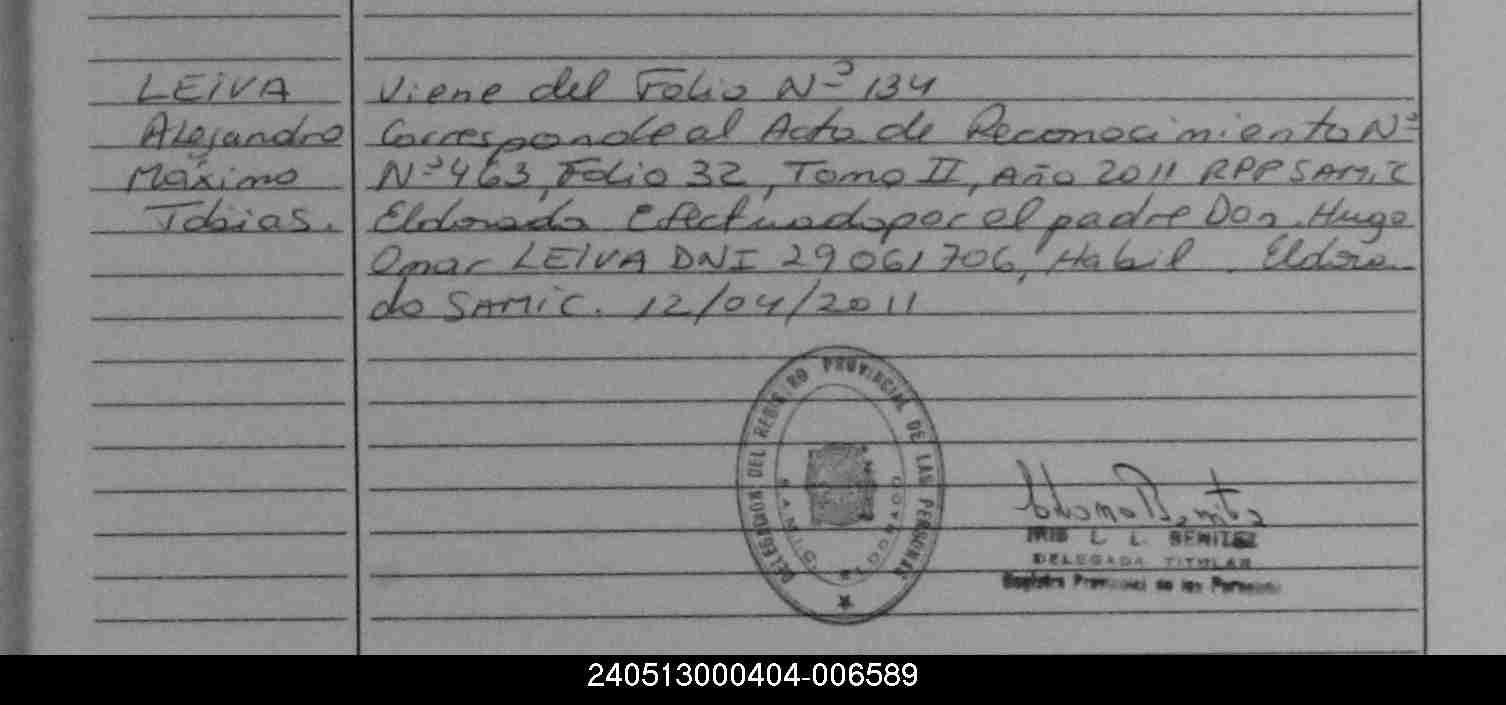 LEIVA
Alejandro
Máximo
Tobias.
Viene del Folio Nº 134
Corresponde al Acta de Reconocimiento Nº
Nº 463, Folio 32, Tomo II, Año 2011 RPP SAMIC
Eldorado Efectuado por el padre Don. Hugo
Omar LEIVA DNI 29061706, Habil. Eldora
do SAMIC. 12/04/2011
DELEGACION DEL REGISTRO PROVINCIAL DE LAS PERSONAS
ELDORADO
L. L. BENITEZ
DELEGADA TITULAR
Registro Provincial de las Personas
240513000404-006589